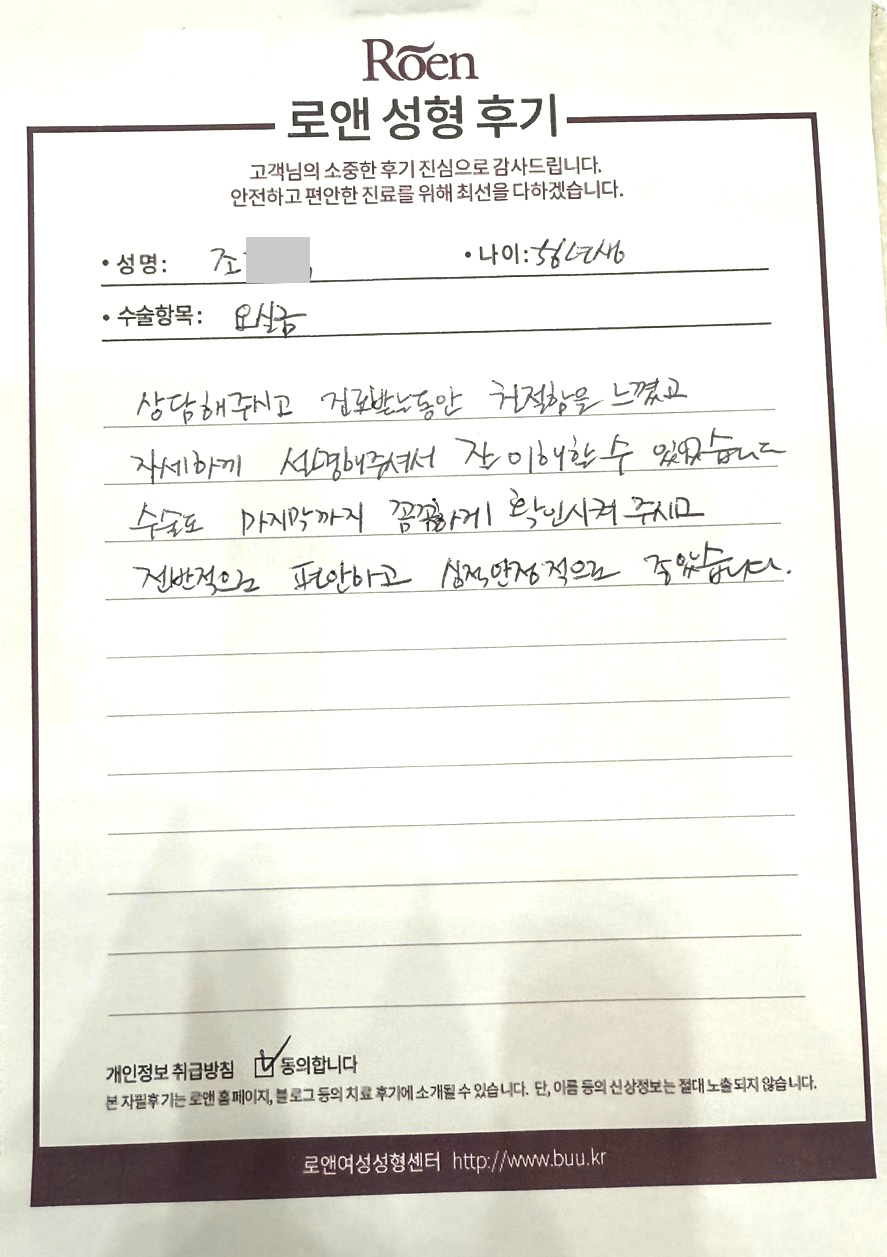 Rōen
로앤 성형 후기
고객님의 소중한 후기 진심으로 감사드립니다.
안전하고 편안한 진료를 위해 최선을 다하겠습니다.
• 성명: 조 • 나이: 56년생
• 수술항목: 요실금
상담해주시고 진료받는동안 친절함을 느꼈고
자세하게 설명해주셔서 잘 이해할 수 있었습니다
수술도 마지막까지 꼼꼼하게 확인시켜 주시고
전반적으로 편안하고 심적안정적으로 좋았습니다.
개인정보 취급방침 동의합니다
본 자필후기는 로앤 홈페이지, 블로그 등의 치료 후기에 소개될 수 있습니다. 단, 이름 등의 신상정보는 절대 노출되지 않습니다.
로앤여성성형센터 http://www.buu.kr